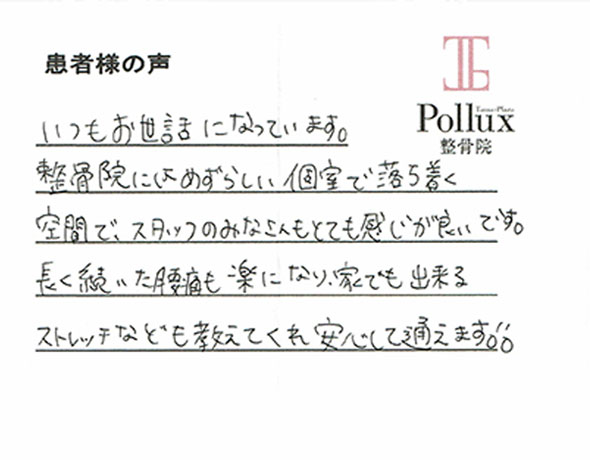 患者様の声
Tama-Plaza
Pollux
整骨院
いつもお世話になっています。
整骨院にはめずらしい個室で落ち着く
空間で、スタッフのみなさんもとても感じが良いです。
長く続いた腰痛も楽になり、家でも出来る
ストレッチなども教えてくれ安心して通えます!!